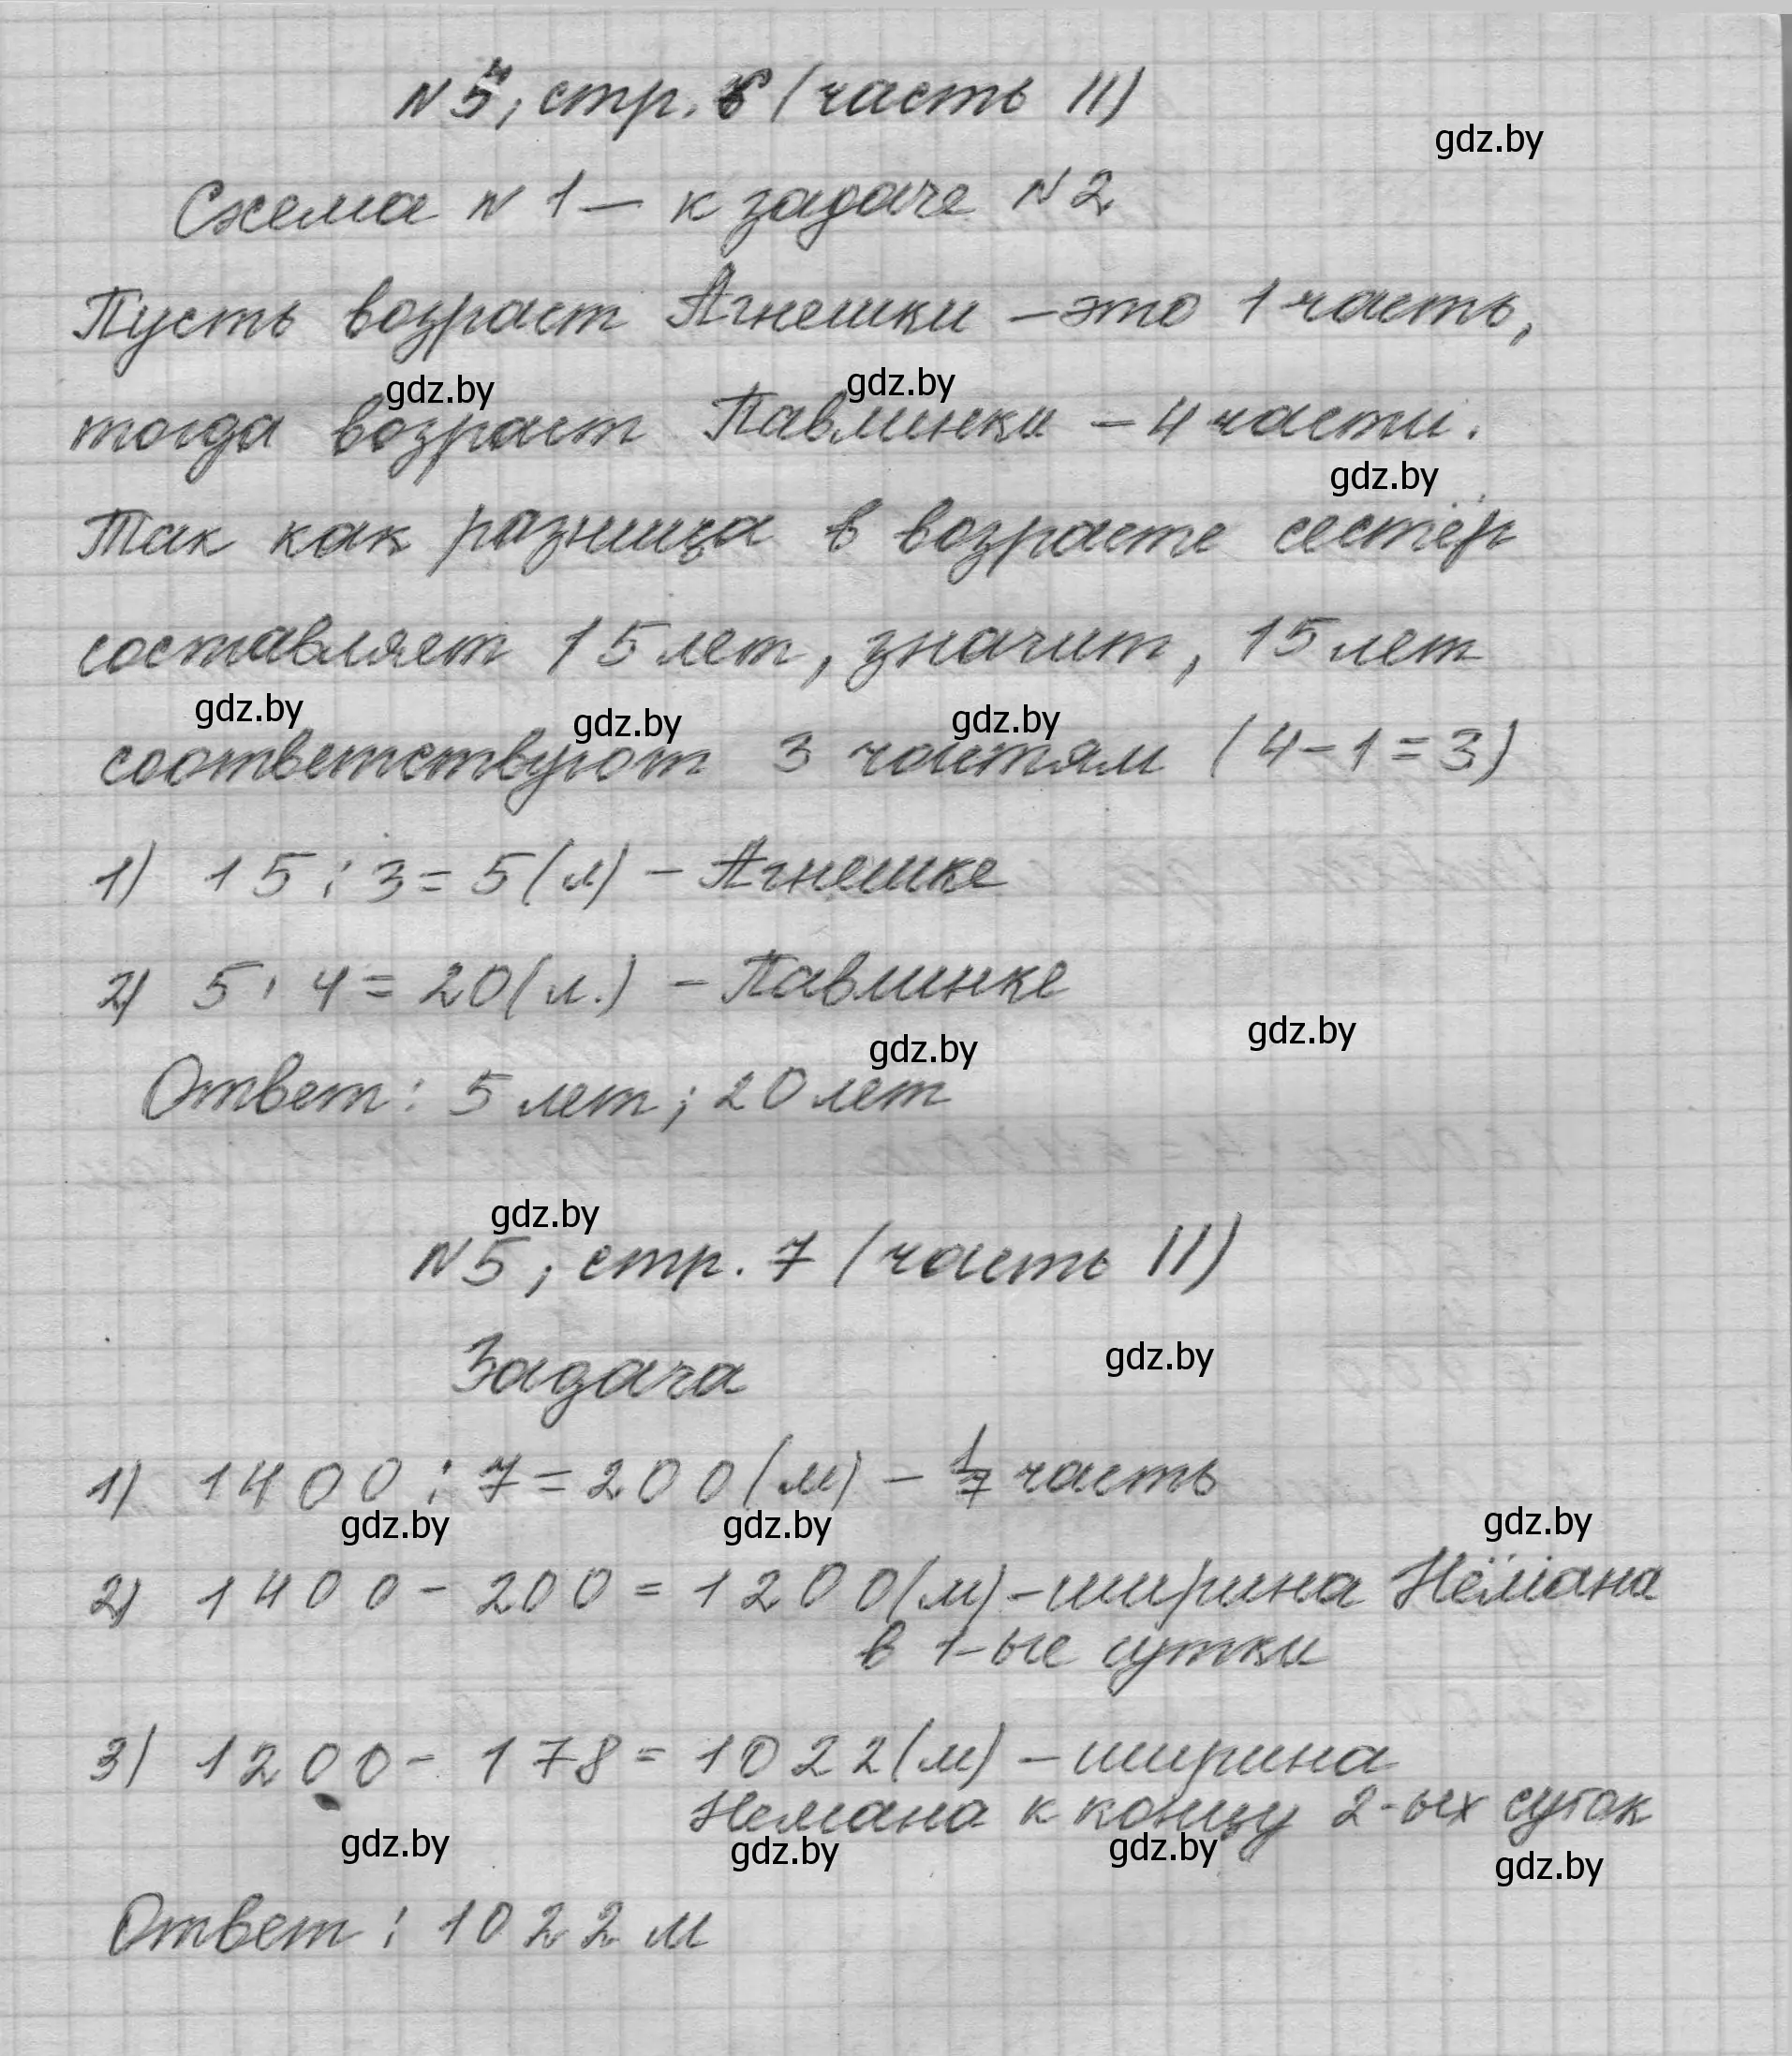 стр. (часть II)
gdz.by
Схема N 1 – к задаче N 2
Пусть возраст Агнешки – это 1 часть,
gdz.by gdz.by
тогда возраст Павлинки – 4 части.
gdz.by
Так как разница в возрасте сестёр
составляет 15 лет, значит, 15 лет
gdz.by gdz.by gdz.by
соответствуют 3 частям (4 – 1 = 3)
1) 15 : 3 = 5 (л) – Агнешке
2) 5 · 4 = 20 (л.) – Павлинке
gdz.by gdz.by
Ответ: 5 лет; 20 лет
gdz.by
N 5, стр. 7 (часть II)
gdz.by
Задача
1) 1400 : 7 = 200 (м) – 1/7 часть
gdz.by gdz.by gdz.by
2) 1400 – 200 = 1200 (м) – ширина Нёмана
в 1-ые сутки
3) 1200 – 178 = 1022 (м) – ширина
Немана к концу 2-ых суток
gdz.by gdz.by gdz.by gdz.by
Ответ: 1022 м